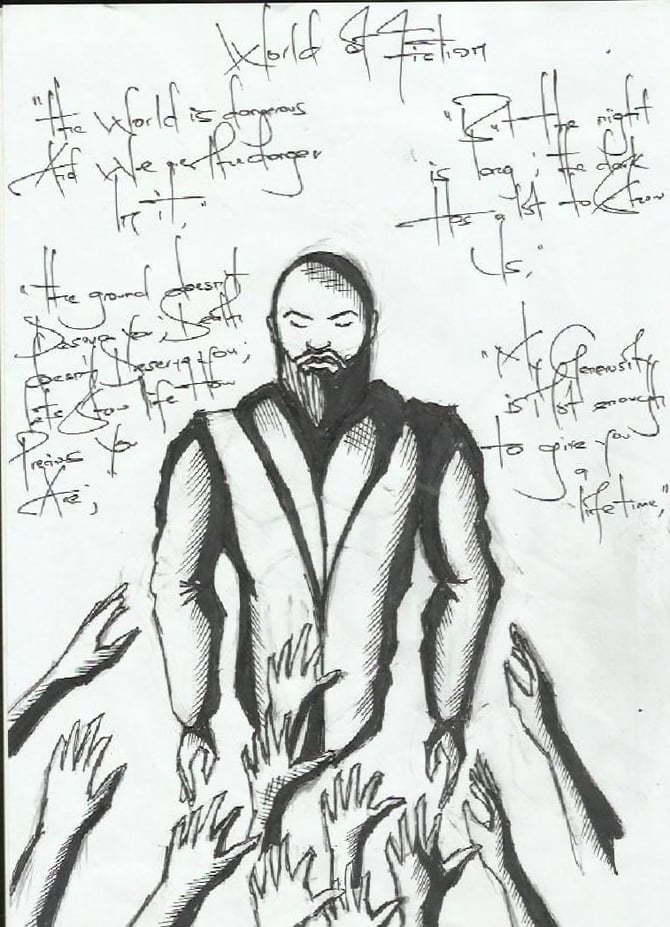 World Of Fiction
"The World is dangerous
And We are the danger
In it,"
"But the night
is long; the dark
Has a lot to Show
Us,"
"the ground doesn't
Deserve You, Death
doesn't Deserve You;
Lets Show life How
Precious You
Are;
"My Generosity
is Not enough
to give you
a
lifetime,"